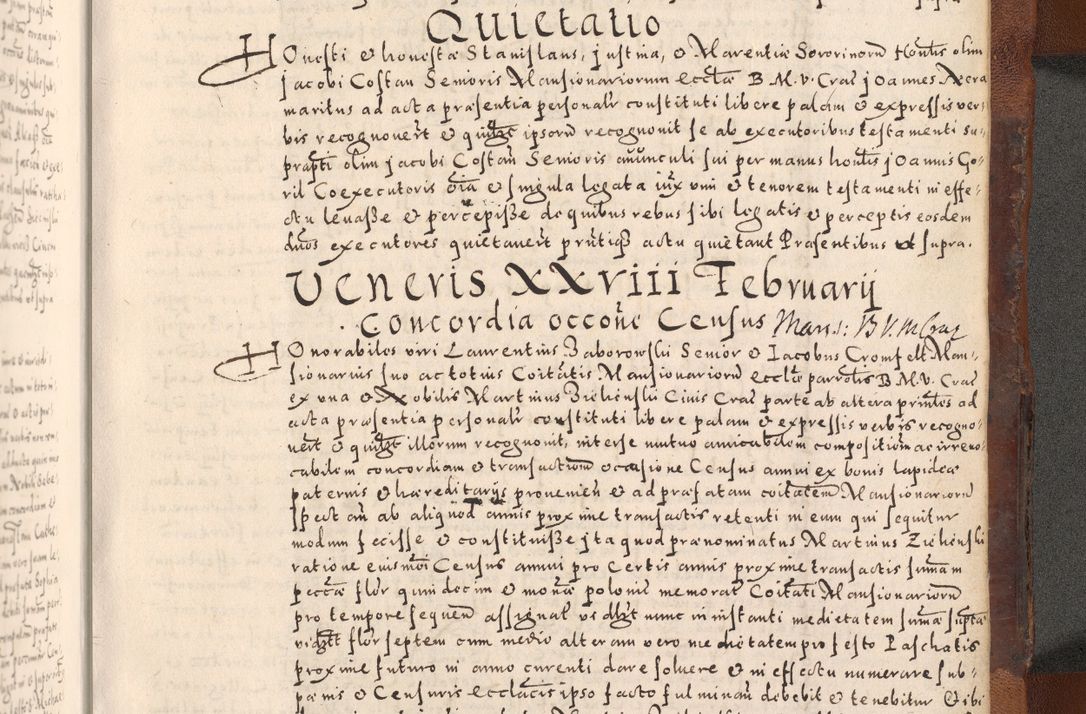 Quietatio
Honesti et honestæ Stanislaus, justina, et Marentiæ Sororinorū honēstis olim
jacobi Costan Senioris Mansionariorum Ecctæ B. M. V. Crac joannes
maritus ad acta præsentia personalr constituti libere palam et expressis ver-
bis recognoverūt et quilibet ipsorū recognovit se ab executoribus testamenti su-
prapti olim jacobi Costan Senioris avunculi sui per manus honēstis joannis Go-
ril Coexecutoris oīa et singula legata iux vim et tenorem testamenti in effe-
ctu levasse et percepisse de quibus rebus sibi legatis et perceptis eosdem
duos executores quietaverūt prūtiqȝ actu quietant Præsentibus ut supra.
Veneris XXVIII Februarij
Concordia occōne Census Mans: B V. M Crac
Honorabiles viri Laurentius Zaborowski Senior et Iacobus Cromfelt Man-
sionarius suo ac totius Coitātis Mansionariorū Ecclæ parrotis B. M. V. Crac
ex una et Nobilis Martinus Ziehenski Civis Crac parte ab altera prīntes ad
acta præsentia personalr constituti libere palam et expressis verbis recogno-
verūt et quilibet illorum recognovit, inter se mutuo amicabilem compositiōm ac irrevo-
cabilem concordiam et transactionē occasione Census annui ex bonis lapideæ
paternis et hæreditarijs provenieñ et ad præfatam coitātem Mansionariorū
spectañ ab aliquod annis proxime transactis retenti in eum qui sequitur
modum fecisse et constituisse jta quod prænominatus Martinus Ziehenski
ratione eiusmōi Census annui pro certis annis proxime transactis sumam
peccæ flor quindecim et monæ poloniē memorat Coitāti Mansionariorū
pro tempore sequeñ assignat videlicet nunc in instanti medietatem sumæ suptæ
videlicet flor septem cum medio alteram vero medietatem pro festo Paschatis
proxime futuro in anno currenti dare solvere et in effectu numerare sub-
pænis et Censuris ecclācis ipso facto fulminañ debebit et tenebitur et ibi